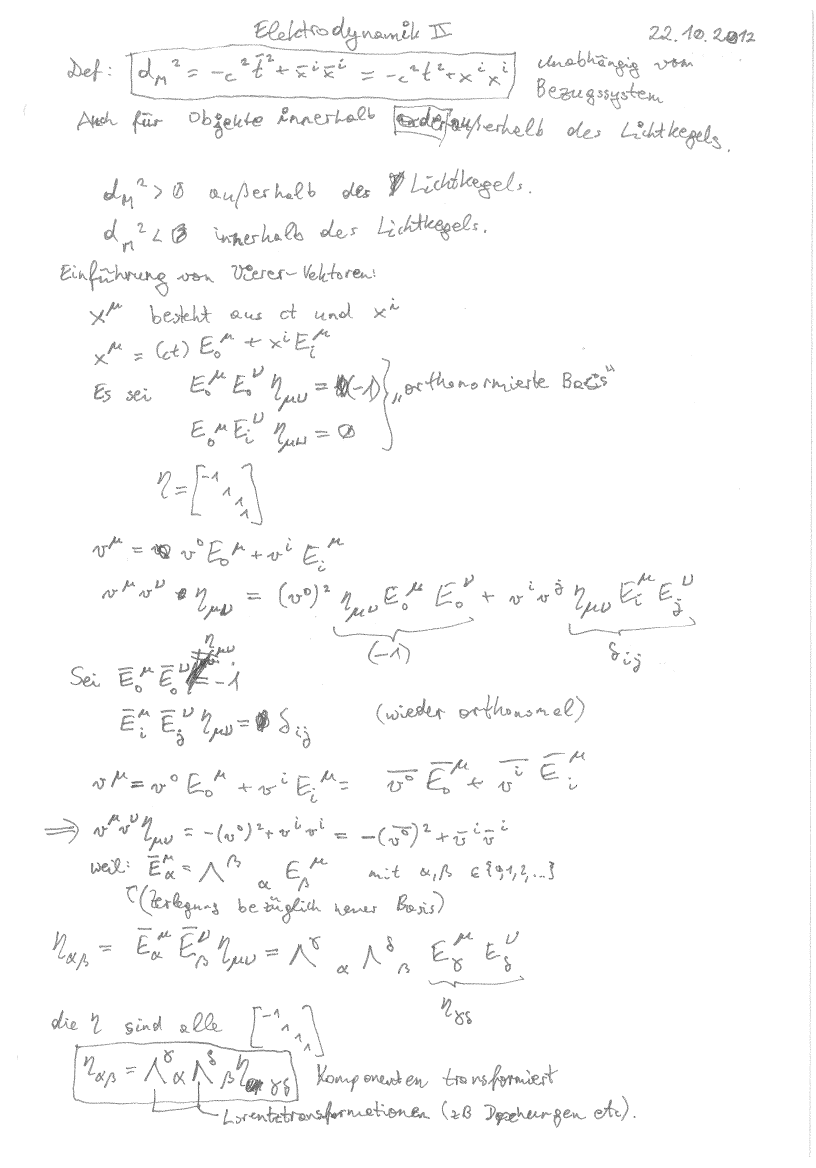 Elektrodynamik II 22.10.2012
Def: d_M² = -c²t̄² + x̄ⁱx̄ⁱ = -c²t² + xⁱxⁱ unabhängig vom
Bezugssystem
Auch für Objekte innerhalb oder außerhalb des Lichtkegels.
d_M² > 0 außerhalb des Lichtkegels.
d_M² < 0 innerhalb des Lichtkegels.
Einführung von Vierer-Vektoren:
x^μ besteht aus ct und xⁱ
x^μ = (ct) E_0^μ + xⁱ E_i^μ
Es sei E_0^μ E_0^ν η_μν = (-1) } „orthonormierte Basis"
E_0^μ E_i^ν η_μν = 0
η = [-1 1 1 1]
v^μ = v⁰ E_0^μ + vⁱ E_i^μ
v^μ v^ν η_μν = (v⁰)² η_μν E_0^μ E_0^ν + vⁱ v^j η_μν E_i^μ E_j^ν
(-1) δ_ij
Sei Ē_0^μ Ē_0^ν η_μν = -1
Ē_i^μ Ē_j^ν η_μν = δ_ij (wieder orthonormal)
v^μ = v⁰ E_0^μ + vⁱ E_i^μ = v̄⁰ Ē_0^μ + v̄ⁱ Ē_i^μ
⇒ v^μ v^ν η_μν = -(v⁰)² + vⁱvⁱ = -(v̄⁰)² + v̄ⁱv̄ⁱ
weil: Ē_α^μ = Λ^β_α E_β^μ mit α,β ∈ {0,1,2,...}
(Zerlegung bezüglich neuer Basis)
η_αβ = Ē_α^μ Ē_β^ν η_μν = Λ^γ_α Λ^δ_β E_γ^μ E_δ^ν
η_γδ
die η sind alle [-1 1 1 1]
η_αβ = Λ^γ_α Λ^δ_β η_γδ Komponenten transformiert
Lorentztransformationen (zB Drehungen etc).